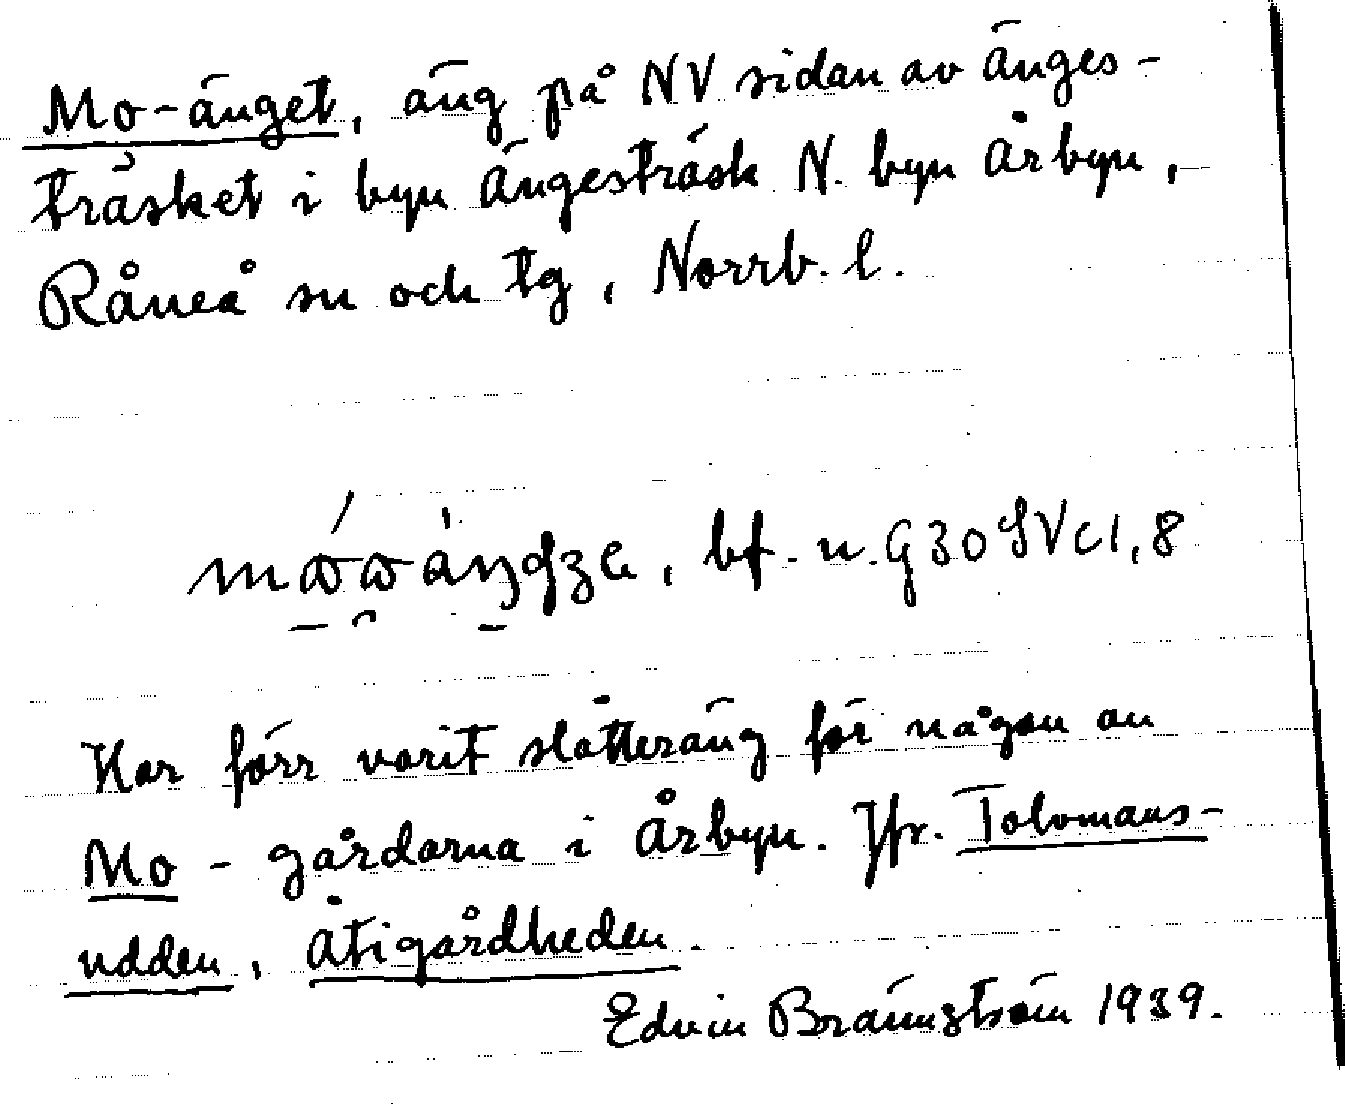 Mo-änget, äng på NV sidan av Änges-
träsket i byn Ängesträsk N. byn Årbyn,
Råneå sn och tg, Norrb. l.
bf. n. G30 SV c1,8
Har förr varit slåtteräng för någon av
Mo-gårdarna i Årbyn. Jfr. Tolomans-
udden, Åtigårdheden.
Edvin Brännström 1939.